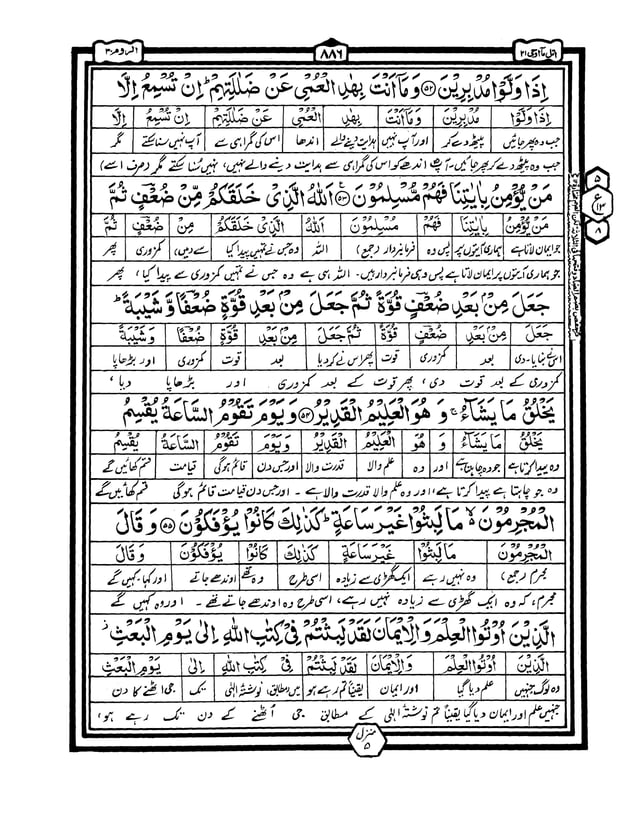 اتل ما اوحی ۲۱
۸۸۶
الروم ۳۰
اِذَا وَلَّوْا مُدْبِرِیْنَ ۵۲ وَ مَاۤ اَنْتَ بِهٰدِ الْعُمْیِ عَنْ ضَلٰلَتِهِمْ ؕ اِنْ تُسْمِعُ اِلَّا
اِذَا وَلَّوْا مُدْبِرِیْنَ وَمَاۤ اَنْتَ بِهٰدِ الْعُمْیِ عَنْ ضَلٰلَتِهِمْ اِنْ تُسْمِعُ اِلَّا
جب وہ پھر جائیں پیٹھ دے کر اور آپ نہیں ہدایت دینے والے اندھا اس کی گمراہی سے آپ نہیں سنا سکتے مگر
جب وہ پیٹھ دے کر پھر جائیں۔ آپ اندھے کو اس کی گمراہی سے ہدایت دینے والے نہیں، نہیں سُنا سکتے مگر (صرف اسے)
مَنْ یُّؤْمِنُ بِاٰیٰتِنَا فَهُمْ مُّسْلِمُوْنَ ۵۳ اَللّٰهُ الَّذِیْ خَلَقَكُمْ مِّنْ ضُعْفٍ ثُمَّ
مَنْ یُّؤْمِنُ بِاٰیٰتِنَا فَهُمْ مُّسْلِمُوْنَ اَللّٰهُ الَّذِیْ خَلَقَكُمْ مِّنْ ضُعْفٍ ثُمَّ
جو ایمان لاتا ہے ہماری آیتوں پر پس وہ فرمانبردار (جمع) اللہ وہ جس نے تمہیں پیدا کیا سے (میں) کمزوری پھر
جو ہماری آیتوں پر ایمان لاتا ہے پس وہی فرمانبردار ہیں۔ اللہ ہی ہے وہ جس نے تمہیں کمزوری سے پیدا کیا، پھر
جَعَلَ مِنْۢ بَعْدِ ضُعْفٍ قُوَّةً ثُمَّ جَعَلَ مِنْۢ بَعْدِ قُوَّةٍ ضُعْفًا وَّ شَیْبَةً ؕ
جَعَلَ مِنْۢ بَعْدِ ضُعْفٍ قُوَّةً ثُمَّ جَعَلَ مِنْۢ بَعْدِ قُوَّةٍ ضُعْفًا وَّ شَیْبَةً
اس نے بنایا۔دی بعد کمزوری قوت پھر اس نے کر دیا بعد قوت کمزوری اور بڑھاپا
کمزوری کے بعد قوت دی، پھر قوت کے بعد کمزوری اور بڑھاپا دیا،
یَخْلُقُ مَا یَشَآءُ ۚ وَ هُوَ الْعَلِیْمُ الْقَدِیْرُ ۵۴ وَ یَوْمَ تَقُوْمُ السَّاعَةُ یُقْسِمُ
یَخْلُقُ مَا یَشَآءُ وَ هُوَ الْعَلِیْمُ الْقَدِیْرُ وَ یَوْمَ تَقُوْمُ السَّاعَةُ یُقْسِمُ
وہ پیدا کرتا ہے جو وہ چاہتا ہے اور وہ علم والا قدرت والا اور جس دن قائم ہوگی قیامت قسم کھائیں گے
وہ جو چاہتا ہے پیدا کرتا ہے، اور وہ علم والا قدرت والا ہے۔ اور جس دن قیامت قائم ہوگی قسم کھائیں گے
الْمُجْرِمُوْنَ ۙ۬ مَا لَبِثُوْا غَیْرَ سَاعَةٍ ؕ كَذٰلِكَ كَانُوْا یُؤْفَكُوْنَ ۵۵ وَ قَالَ
الْمُجْرِمُوْنَ مَا لَبِثُوْا غَیْرَ سَاعَةٍ كَذٰلِكَ كَانُوْا یُؤْفَكُوْنَ وَ قَالَ
مجرم (جمع) وہ نہیں رہے ایک گھڑی سے زیادہ اسی طرح وہ تھے اوندھے جاتے اور کہا۔کہیں گے
مجرم، کہ وہ ایک گھڑی سے زیادہ نہیں رہے، اسی طرح وہ اوندھے جاتے تھے۔ اور وہ کہیں گے
الَّذِیْنَ اُوْتُوا الْعِلْمَ وَ الْاِیْمَانَ لَقَدْ لَبِثْتُمْ فِیْ كِتٰبِ اللّٰهِ اِلٰی یَوْمِ الْبَعْثِ ؗ
الَّذِیْنَ اُوْتُوا الْعِلْمَ وَالْاِیْمَانَ لَقَدْ لَبِثْتُمْ فِیْ كِتٰبِ اللّٰهِ اِلٰی یَوْمِ الْبَعْثِ
وہ لوگ جنہیں علم دیا گیا اور ایمان یقیناً تم رہے ہو میں/مطابق نوشتۂ الٰہی تک جی اٹھنے کا دن
جنہیں علم اور ایمان دیا گیا یقیناً تم نوشتۂ الٰہی کے مطابق جی اُٹھنے کے دن تک رہے ہو،
منزل ۵
۵
ع ۱۳
۸